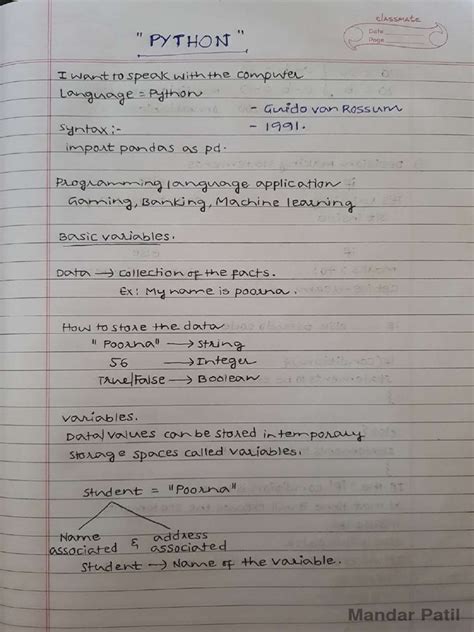 classmate
Date
Page
"PYTHON"
I want to speak with the computer
Language = Python
- Guido van Rossum
Syntax :-
- 1991.
import pandas as pd.
Programming language application
Gaming, Banking, Machine learning
Basic variables.
Data → Collection of the facts.
Ex: My name is poorna.
How to store the data
"Poorna" → String
56 → Integer
True/False → Boolean
Variables.
Data/values can be stored in temporary
storage spaces called variables.
Student = "Poorna"
Name associated & address associated
Student → Name of the variable.
Mandar Patil